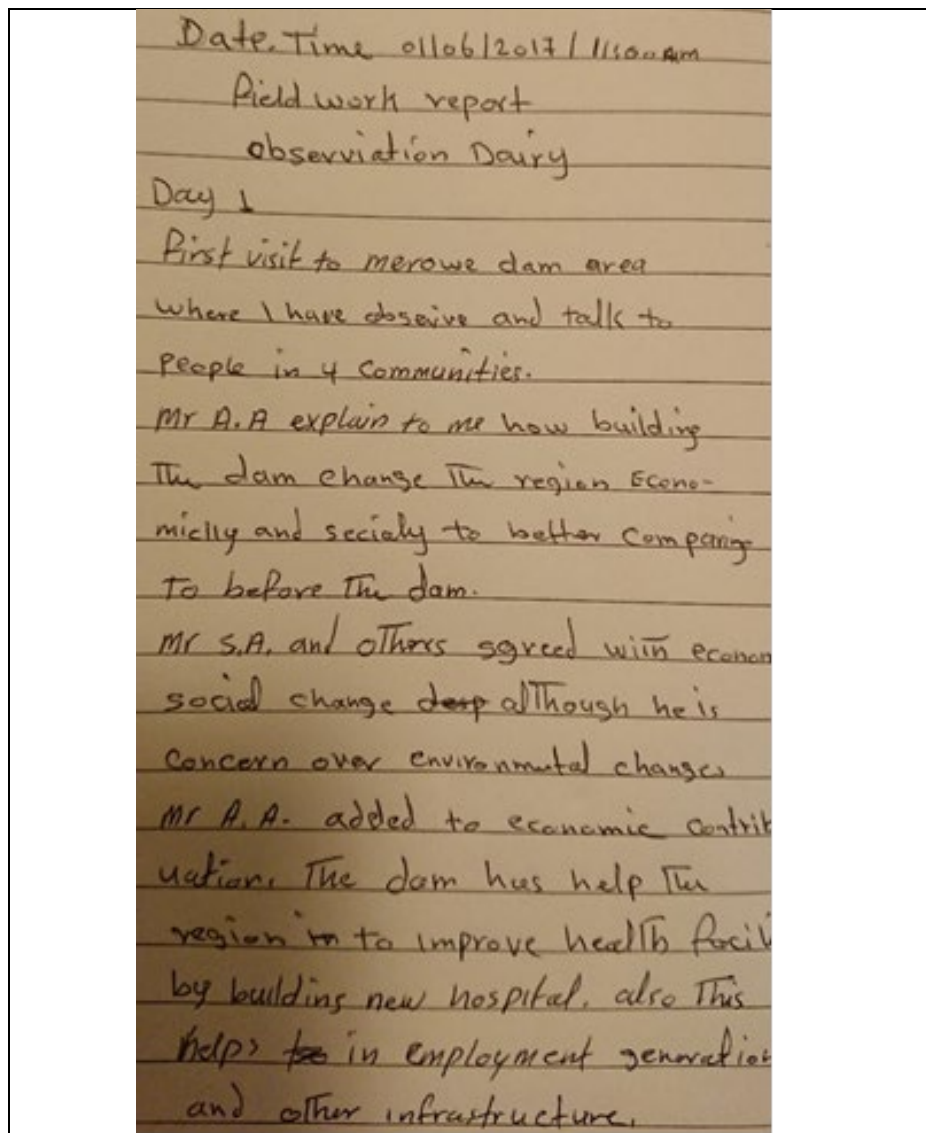 Date. Time 01/06/2017 / 11:00 Am
Field work report
observiation Dairy
Day 1
First visit to merowe dam area
where I have obseive and talk to
People in 4 Communities.
Mr A.A explain to me how building
The dam change The region Econo-
miclly and socialy to better Comparing
To before The dam.
Mr S.A. and others agreed with econom
social change although he is
Concern over environmental changes
Mr A.A. added to economic contrib
uation. The dam has help The
region to improve health facil
by building new hospital. also This
helps in employment generation
and other infrastructure.